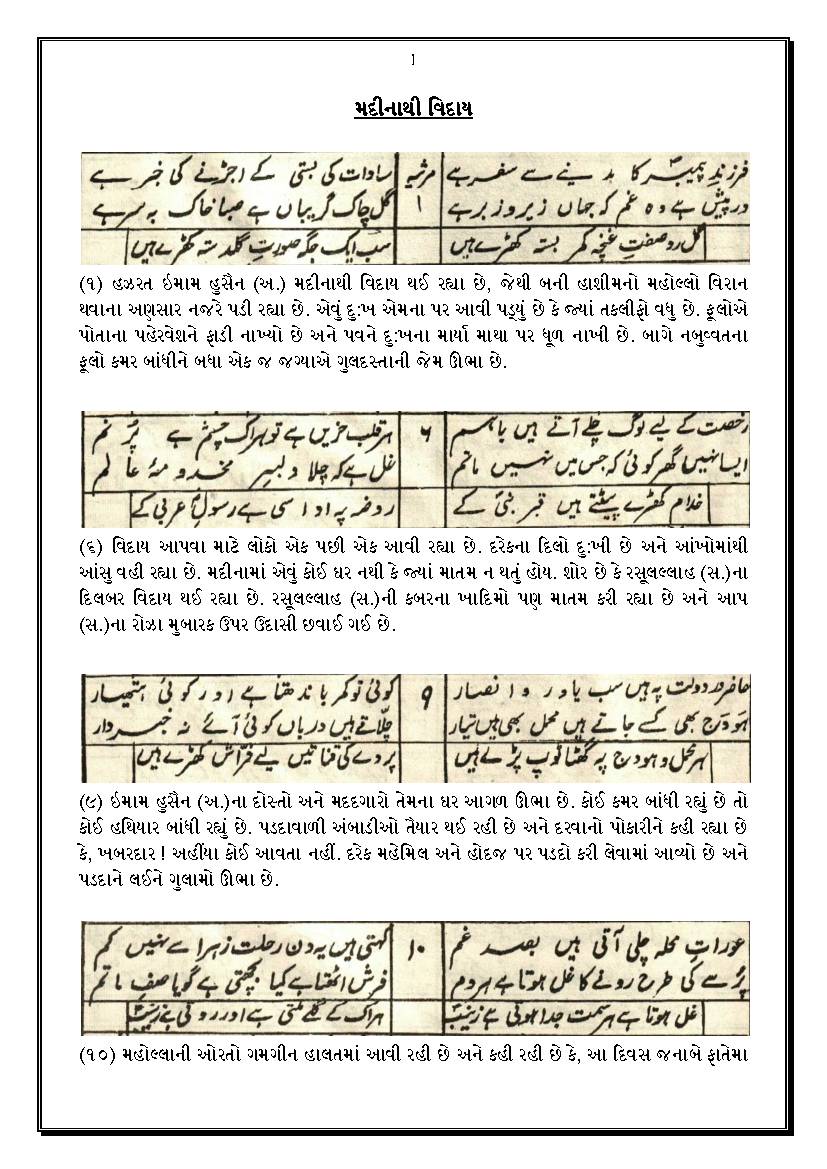 1
મદીનાથી વિદાય
فرزندِ پیمبرؐ کا مدینے سے سفر ہے مرثیہ سادات کی بستی کے اجڑنے کی خبر ہے
در پیش ہے وہ غم کہ جہاں زیر و زبر ہے ۱ گل چاک گریباں ہے صبا خاک بہ سر ہے
گل رو صفتِ غنچہ کمر بستہ کھڑے ہیں سب ایک جگہ صورتِ گلدستہ کھڑے ہیں
(૧) હઝરત ઇમામ હુસૈન (અ.) મદીનાથી વિદાય થઈ રહ્યા છે, જેથી બની હાશીમનો મહોલ્લો વિરાન
થવાના અણસાર નજરે પડી રહ્યા છે. એવું દુ:ખ એમના પર આવી પડ્યું છે કે જ્યાં તકલીફો વધુ છે. ફૂલોએ
પોતાના પહેરવેશને ફાડી નાખ્યો છે અને પવને દુ:ખના માર્યા માથા પર ધૂળ નાખી છે. બાગે નબુવ્વતના
ફૂલો કમર બાંધીને બધા એક જ જગ્યાએ ગુલદસ્તાની જેમ ઊભા છે.
رخصت کے لیے لوگ چلے آتے ہیں باہم ۶ ہر قلب حزیں ہے تو ہر اک چشم ہے پُر نم
ایسا نہیں گھر کوئی کہ جس میں نہیں ماتم غل ہے کہ چلا دلبرِ مخدومۂ عالم
خدام کھڑے پیٹتے ہیں قبرِ نبیؐ کے روضہ پہ اداسی ہے رسولِؐ عربی کے
(૬) વિદાય આપવા માટે લોકો એક પછી એક આવી રહ્યા છે. દરેકના દિલો દુ:ખી છે અને આંખોમાંથી
આંસુ વહી રહ્યા છે. મદીનામાં એવું કોઈ ઘર નથી કે જ્યાં માતમ ન થતું હોય. શોર છે કે રસૂલલ્લાહ (સ.)ના
દિલબર વિદાય થઈ રહ્યા છે. રસૂલલ્લાહ (સ.)ની કબરના ખાદિમો પણ માતમ કરી રહ્યા છે અને આપ
(સ.)ના રોઝા મુબારક ઉપર ઉદાસી છવાઈ ગઈ છે.
حاضر درِ دولت پہ ہیں سب یاور و انصار ۹ کوئی تو کمر باندھتا ہے اور کوئی ہتھیار
ہودج بھی کسے جاتے ہیں محمل بھی ہیں تیار چلّاتے ہیں درباں کوئی آئے نہ خبردار
ہر محمل و ہودج پہ گھٹا ٹوپ پڑے ہیں پردے کی قناتیں لیے فراش کھڑے ہیں
(૯) ઇમામ હુસૈન (અ.)ના દોસ્તો અને મદદગારો તેમના ઘર આગળ ઊભા છે. કોઈ કમર બાંધી રહ્યું છે તો
કોઈ હથિયાર બાંધી રહ્યું છે. પડદાવાળી અંબાડીઓ તૈયાર થઈ રહી છે અને દરવાનો પોકારીને કહી રહ્યા છે
કે, ખબરદાર ! અહીંયા કોઈ આવતા નહીં. દરેક મહેમિલ અને હોદજ પર પડદો કરી લેવામાં આવ્યો છે અને
પડદાને લઈને ગુલામો ઊભા છે.
عوراتِ محلہ چلی آتی ہیں بصد غم ۱۰ کہتی ہیں یہ دن رحلتِ زہرا سے نہیں کم
پُرسے کی طرح رونے کا غل ہوتا ہے ہر دم فرش اٹھتا ہے کیا بچھتی ہے گویا صفِ ماتم
غل ہوتا ہے ہر سمت جدا ہوتی ہے زینبؑ ہر اک کے گلے ملتی ہے اور روتی ہے زینبؑ
(૧૦) મહોલ્લાની ઓરતો ગમગીન હાલતમાં આવી રહી છે અને કહી રહી છે કે, આ દિવસ જનાબે ફાતેમા